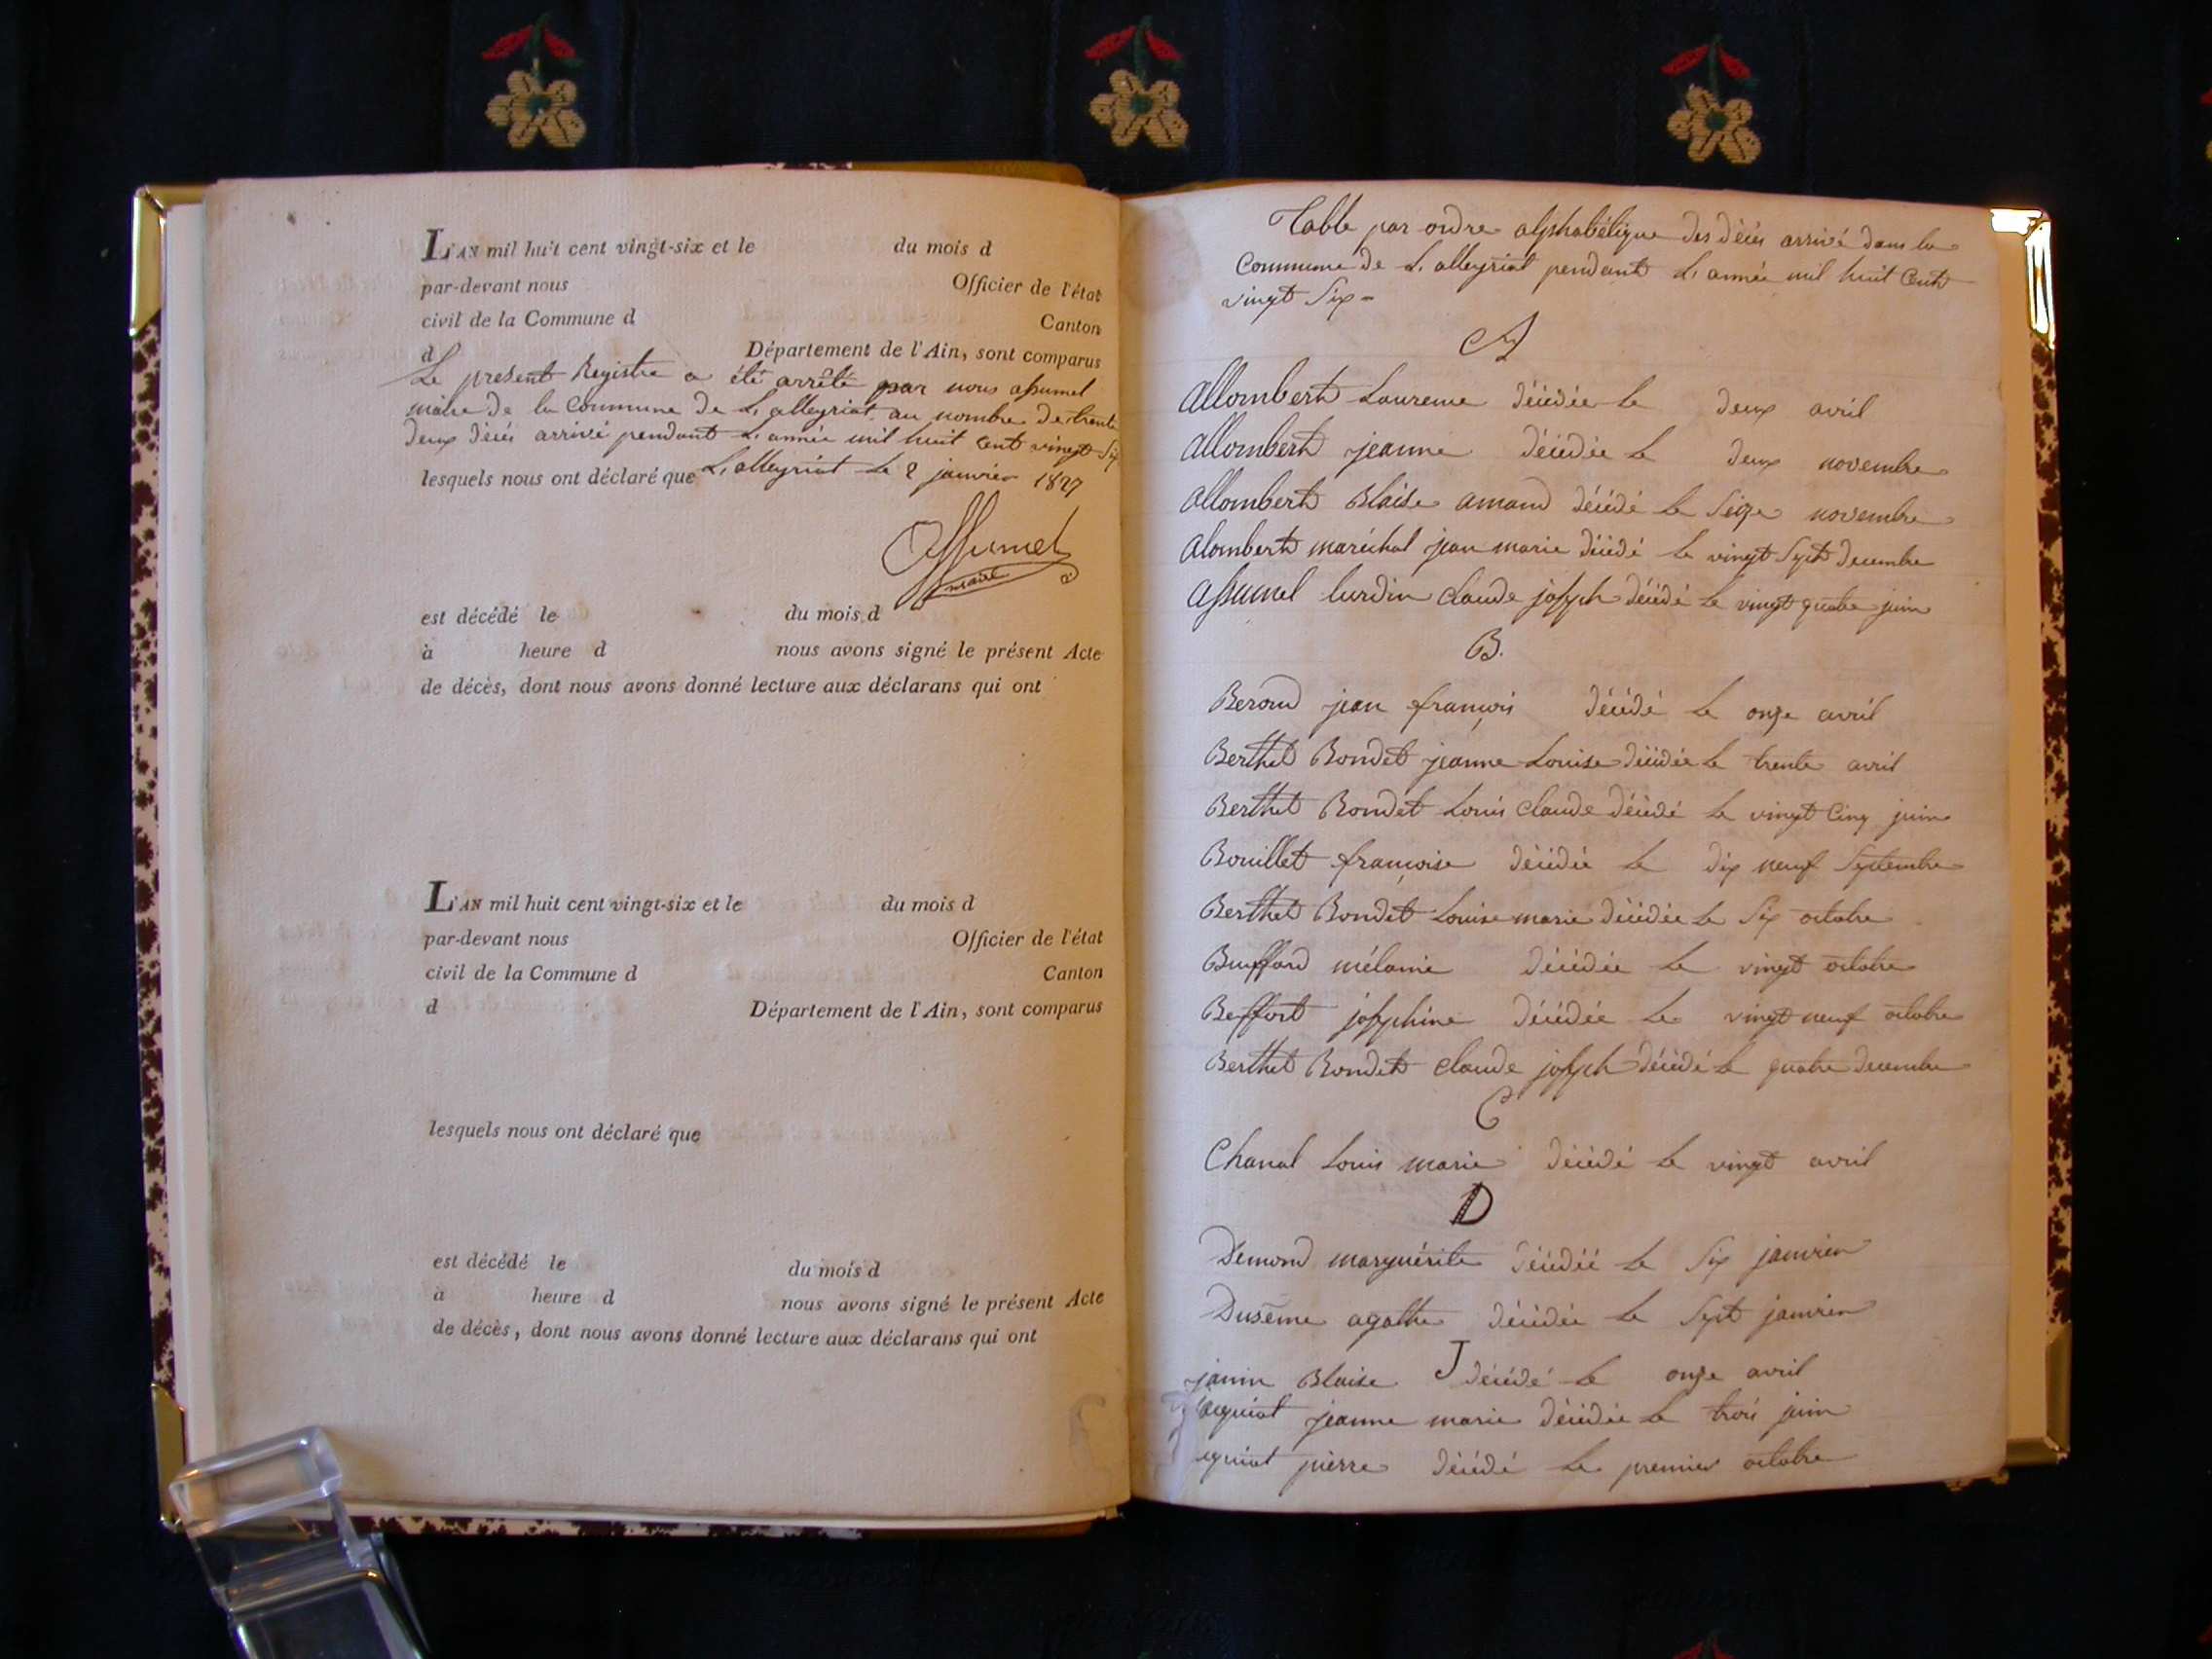 L'AN mil huit cent vingt-six et le du mois d
par-devant nous Officier de l'état
civil de la Commune d Canton
d Département de l'Ain, sont comparus
Le present Registre a été arrêté par nous assumel
maire de la Commune de L'alleyriat au nombre de trente
deux décés arrivé pendant L'année mil huit cent vingt Six
lesquels nous ont déclaré que L'alleyriat Le 2 janvier 1827
Assumel
maire
est décédé le du mois d
à heure d nous avons signé le présent Acte
de décès, dont nous avons donné lecture aux déclarans qui ont
L'AN mil huit cent vingt-six et le du mois d
par-devant nous Officier de l'état
civil de la Commune d Canton
d Département de l'Ain, sont comparus
lesquels nous ont déclaré que
est décédé le du mois d
à heure d nous avons signé le présent Acte
de décès, dont nous avons donné lecture aux déclarans qui ont
Table par ordre alphabétique des décés arrivé dans la
Commune de L'alleyriat pendant L'année mil huit Cent
vingt Six =
A
Allombert Laurence décédée Le deux avril
Allombert jeanne décédée Le deux novembre
Allombert Blaise amand décédé Le Seize novembre
Alombert maréchal jean marie décédé Le vingt Sept decembre
Assumel lurdin Claude joseph décédé Le vingt quatre juin
B.
Beroud jean françois décédé Le onze avril
Berthet Bondet jeanne Louise décédée Le trente avril
Berthet Bondet Louis Claude décédé Le vingt Cinq juin
Bouillet françoise décédée Le dix neuf Septembre
Berthet Bondet Louise marie décédée Le Six octobre
Buffard mélanie décédée Le vingt octobre
Beffort joséphine décédée Le vingt neuf octobre
Berthet Bondet Claude joseph décédé Le quatre decembre
C
Chanal Louis marie décédé Le vingt avril
D
Demond marguérite décédée Le Six janvier
Dusême agathe décédée Le Sept janvier
J
janin Blaise décédé Le onze avril
jeanne marie décédée Le trois juin
pierre décédé Le premier octobre